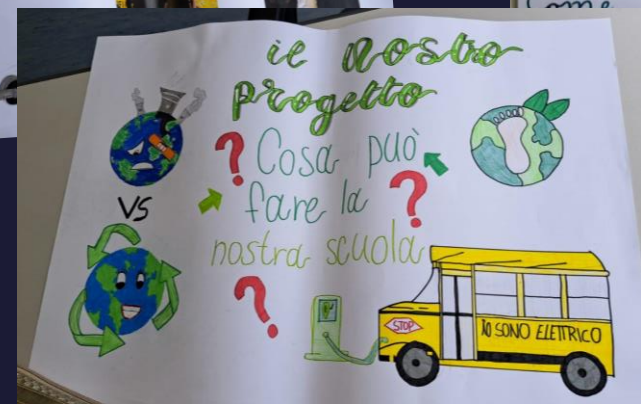 il nostro
progetto
? Cosa può
fare la ?
nostra scuola
?
VS
STOP
IO SONO ELETTRICO